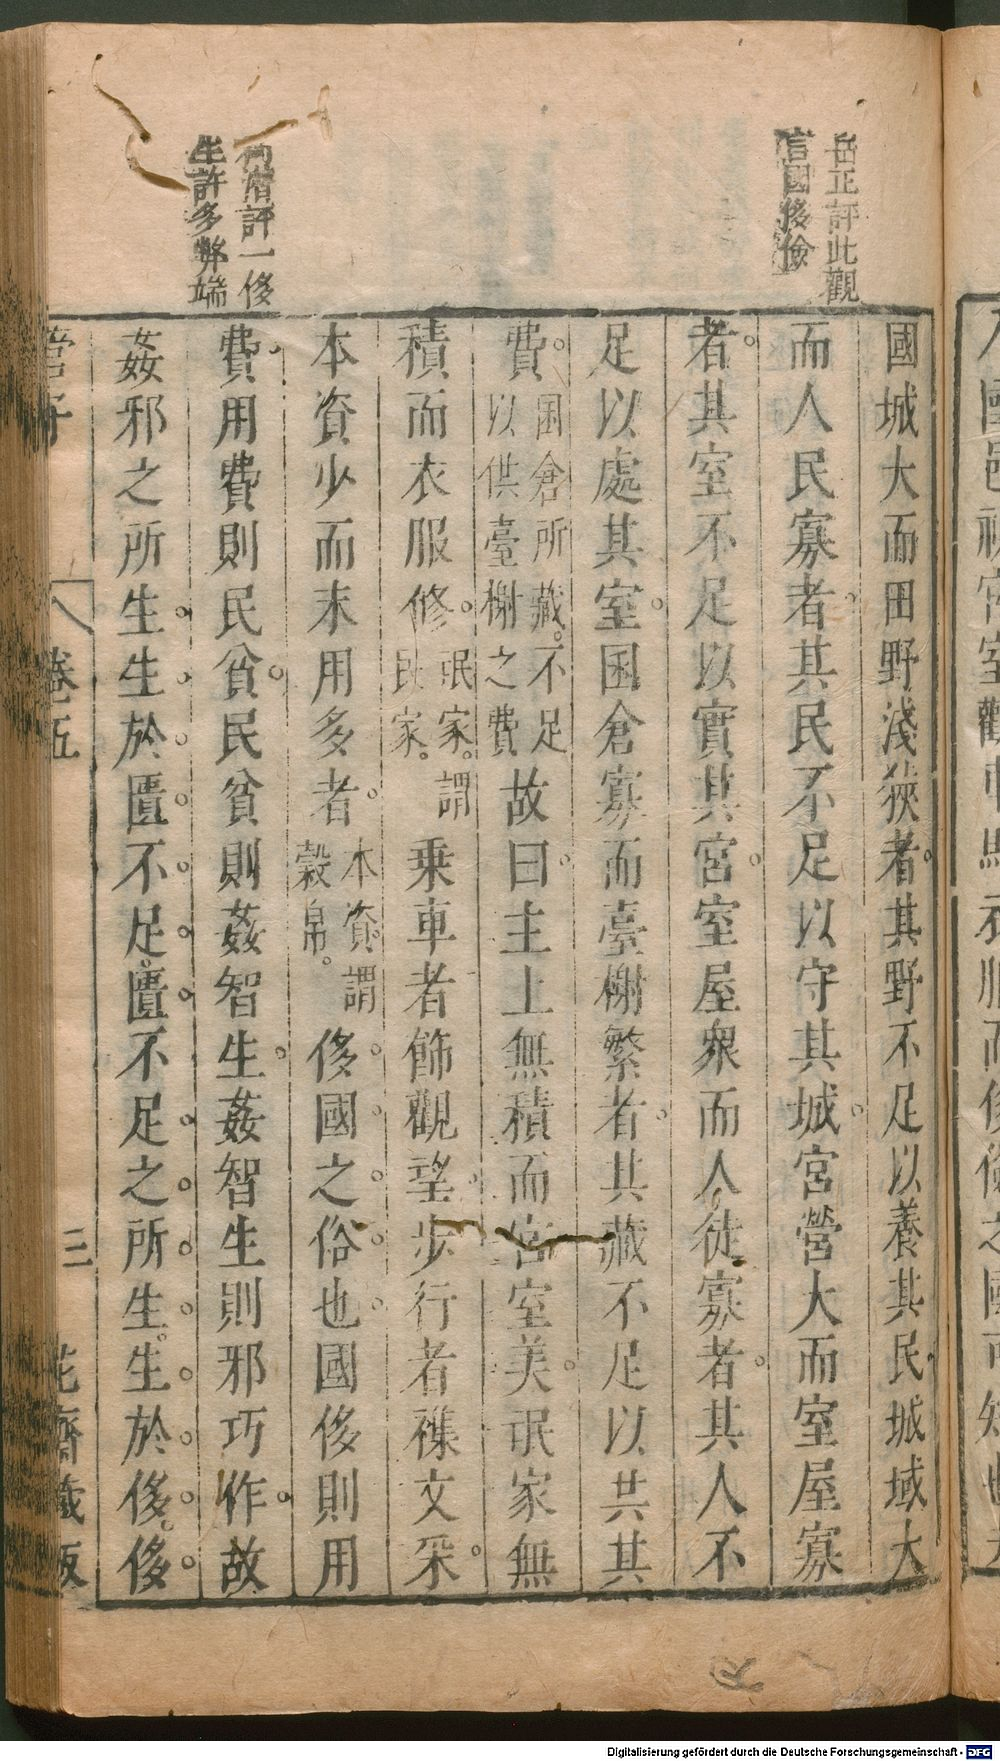 岳正評此觀
言國侈儉
國城大而田野淺狹者其野不足以養其民城域大
而人民寡者其民不足以守其城宮營大而室屋寡
者其室不足以實其宮室屋衆而人徒寡者其人不
足以處其室囷倉寡而臺榭繁者其藏不足以共其
費囷倉所藏不足以供臺榭之費故曰主上無積而宮室美氓家無
積而衣服修氓家謂民家乘車者飾觀望步行者襍文采
本資少而末用多者本資謂穀帛侈國之俗也國侈則用
費用費則民貧民貧則姦智生姦智生則邪巧作故
姦邪之所生生於匱不足匱不足之所生生於侈侈
評一侈
生許多弊端
管子
卷五
三
花齋藏板
Digitalisierung gefördert durch die Deutsche Forschungsgemeinschaft - DFG